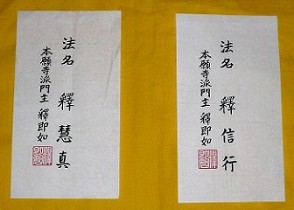 法名 釋 信行
本願寺派門主 釋即如
法名 釋 慧真
本願寺派門主 釋即如